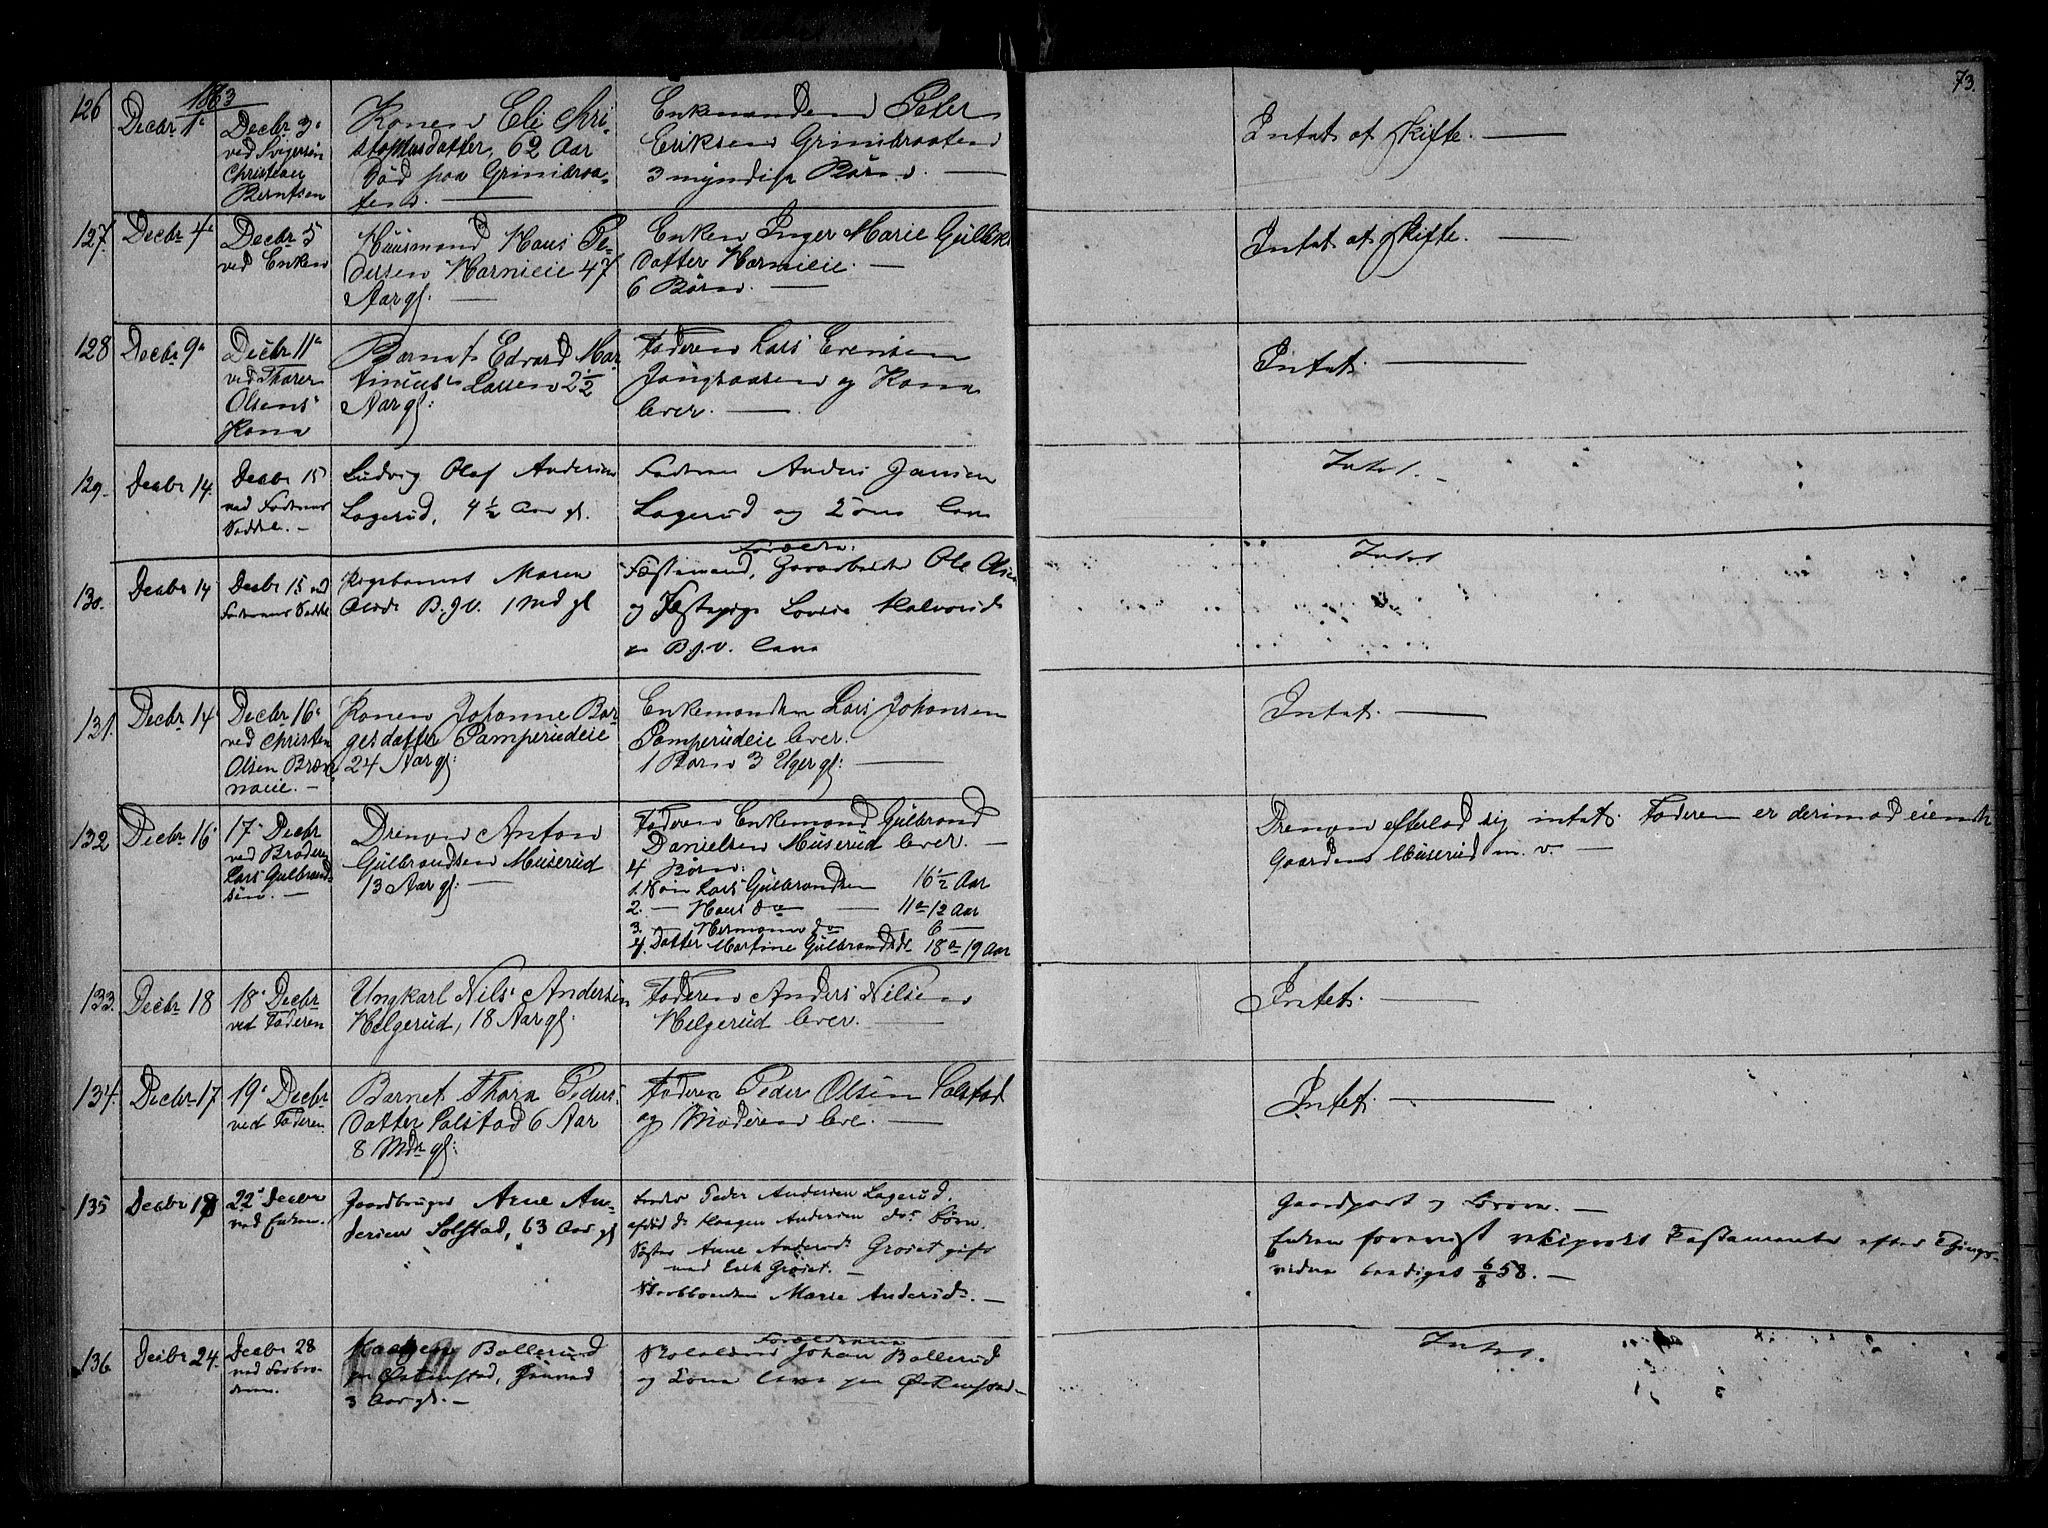 73.
1863
126
Decbr 1ª
Decbr 3ª
ved Svigersøn
Christian
Berntsen
Konen Eli Chri-
stophersdatter, 62 Aar
Død paa Grinibraa-
ten.
Enkemanden Peter
Eriksen Grinibraaten
3 myndige Børn.
Intet at skifte.
127.
Decbr 4ª
Decbr 5
ved Enken
Huusmand Hans Pe-
dersen Hornieie 47
Aar gl:
Enken Inger Marie Gulliks
datter Hornieie.
6 Børn.
Intet at skifte.
128
Decbr 9ª
Decbr 11ª
ved Thorer
Olsens
Kone
Barnet Edvard Mar
tinius Larsen 2½
Aar gl:
Faderen Lars Evensen
og Kone
lever.
Intet.
129.
Decbr 14.
Decbr 15
ved Faderens
Seddel.
Ludvig Olaf Andersen
Lagerud, 4½ Aar gl.
Faderen Anders Jansen
Lagerud og Kone leve
Intet.
130.
Decbr 14
Decbr 15 ved
Faderens Seddel
Pigebarnet Maren
B.J.V. 1 Md gl
Forældre:
Fæstemand, Ole Olsen
og Fæstepige Lovise Halvorsd
B.J.V. leve
Intet
131.
Decbr 14
Decbr 16ª
ved Christen
Olsen Bræk
naeie.
Konen Johanne Bor-
gersdatter Pamperudeie
24 Aar gl:
Enkemanden Lars Johansen
Pamperudeie lever.
1 Barn 3 Uger gl:
Intet.
132
Decbr 16
17ª Decbr
ved Broderen
Lars Gulbrand-
sen.
Drengen Anton
Gulbrandsen Muserud
13 Aar gl:
Faderen Enkemand Gulbrand
Danielsen Muserud lever.
4 Børn:
1. Søn Lars Gulbrandsen 16½ Aar
2. — Hans do — 11 a 12 Aar
3. — Hermann do 6 —
4. Datter Martine Gulbrandsdr 18 a 19 Aar
Drengen efterlod sig intet. Faderen er derimod eiende
Gaarden Muserud m. v.
133.
Decbr 18
18ª Decbr
ved Faderen
Ungkarl Nils Andersen
Helgerud, 18 Aar gl:
Faderen Anders Nilsen
Helgerud lever.
Intet.
134.
Decbr 17
19ª Decbr
ved Faderen
Barnet Thora Peders
datter Solstad 6 Aar
8 Mdr gl:
Faderen Peder Olsen Solstad
og Moderen leve.
Intet.
135
Decbr 19
22ª Decbr
ved Enken.
Gaardbruger Arne An-
dersen Solstad, 63 Aar gl
Broder Peder Andersen Lagerud.
afdød do Haagen Andersen dos Børn.
Søster Anne Andersdr Groset gift
med Erik Groset.
Marie Andersdr.
Gaardpart og Løsøre.
Enken foreviist Testamente efter Things-
vidne 6/8 58.
136.
Decbr 24.
Decbr 28
ved Farbro-
deren.
Haagen Bollerud
3 Aar gl.
Forældrene
Johan Bollerud
og Kone leve
Intet.